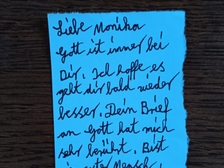 Liebe Monika
Gott ist immer bei
Dir. Ich hoffe es
geht dir bald wieder
besser. Dein Brief
an Gott hat mich
sehr berührt. Bist
Mensch,